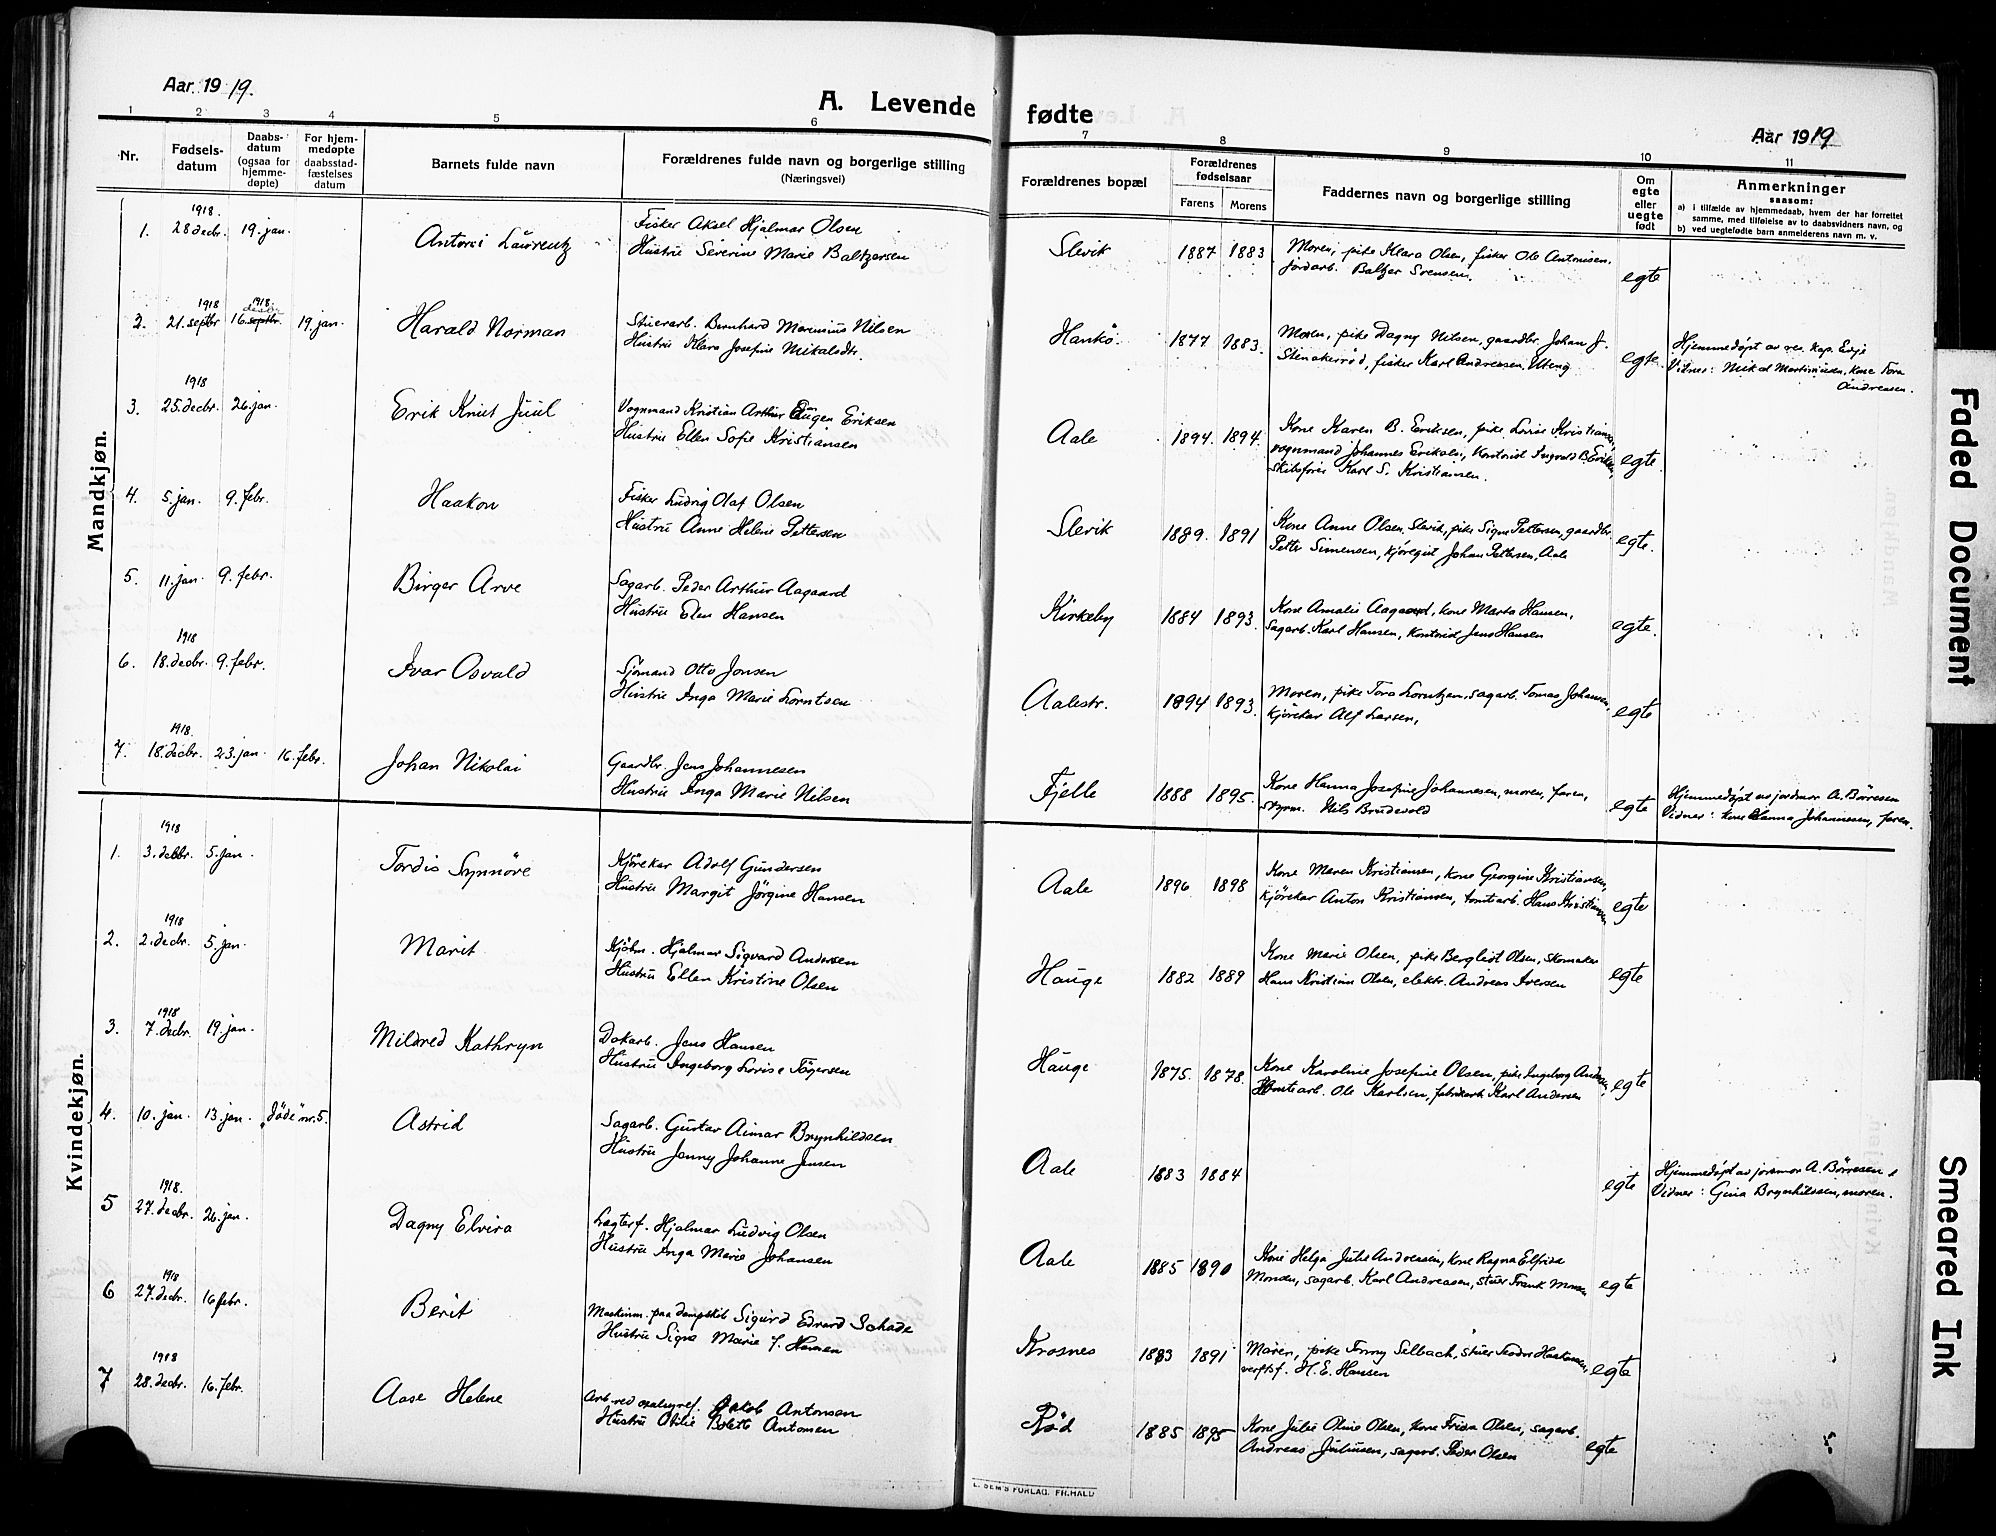 Aar 1919.
A. Levende fødte
Aar 1919
1 2 3 4 5 6 7 8 9 10 11
Nr.
Fødsels-
datum
Daabs-
datum
(ogsaa for
hjemme-
døpte)
For hjem-
medøpte
daabsstad-
fæstelses
datum
Barnets fulde navn
Forældrenes fulde navn og borgerlige stilling
(Næringsvei)
Forældrenes bopæl
Forældrenes
fødselsaar
Farens Morens
Faddernes navn og borgerlige stilling
Om
egte
eller
uegte
født
Anmerkninger
saasom:
a) i tilfælde av hjemmedaab, hvem der har forrettet
samme, med tilføielse av to daabsvidners navn, og
b) ved uegtefødte barn anmelderens navn m. v.
Mandkjøn.
1918.
1. 28 decbr. 19. jan. Antoni Laurentz
Fisker Aksel Hjalmar Olsen
Hustru Severine Marie Baltzersen
Slevik 1887 1883
Moren, pike Klara Olsen, fisker Ole Antonisen,
jordarb. Baltzer Sørensen.
egte
1918 1918
2. 21. septbr 16. septbr. decbr. 19. jan. Harald Norman
Stuerarb. Bernhard Marinius Nilsen
Hustru Klara Josefine Mikalsdtr.
Hankö. 1877 1883.
Moren, pike Dagny Nilsen, gaardbr. Johan J.
Stenakerrød, fisker Karl Andreasen, Uteng
egte.
Hjemmedøpt av res. kap. Evje
Vidner: Mikal Martiniusen, kone Tora
Andreasen.
1918
3. 25. decbr. 26. jan. Erik Knut Juul
Vognmand Kristian Arthur Eugen Eriksen
Hustru Ellen Sofie Kristiansen
Aale 1894. 1894.
Kone Karen B. Eriksen, pike Lovise Kristiansen,
vognmand Johannes Eriksen, kontorist Ingvald B. Eriksen,
skibsfører Karl S. Kristiansen.
egte.
4. 5. jan. 9. febr. Haakon
Fisker Ludvig Olaf Olsen
Hustru Anne Helene Pettersen
Slevik 1889. 1891
Kone Anne Olsen, Slevik, pike Signe Pettersen, gaardbr.
Petter Simensen, kjøregut Johan Pettersen, Aale
egte.
5. 11. jan. 9. febr. Birger Arve
Sagarb. Peder Arthur Aagaard
Hustru Elen Hansen
Kirkeby 1884 1893.
Kone Amalie Aagaard, kone Marta Hansen,
sagarb. Karl Hansen, kontorist Jens Hansen
egte.
1918
6. 18. decbr. 9. febr. Ivar Osvald
Sjømand Otto Jonsen
Hustru Inga Marie Lorntsen
Aalestr. 1894 1893.
Moren, pike Tora Lorntzen, sagarb. Tomas Johansen,
kjørekar Alf Larsen,
egte
1918.
7. 18. decbr. 23. jan. 16. febr. Johan Nikolai
Gaardbr. Jens Johannesen
Hustru Inga Marie Nilsen
Fjelle 1888 1895.
Kone Hanna Josefine Johannesen, moren, faren,
styrm. Nils Brudevold
egte
Hjemmedøpt av jordmor A. Børresen
Vidner: kone Hanna Johannesen, faren.
Kvindekjøn.
1918
1. 3. decbr. 5. jan. Tordis Synnöve
Kjørekar Adolf Gundersen
Hustru Margit Jørgine Hansen
Aale 1896 1898
Kone Maren Kristiansen, kone Georgine Kristiansen,
kjørekar Anton Kristiansen, tomtearb. Hans Kristiansen
egte
1918
2. 2. decbr. 5. jan. Marit
Kjøbm. Hjalmar Sigvard Andersen
Hustru Ellen Kristine Olsen
Hauge 1882 1889
Kone Marie Olsen, pike Bergliot Olsen, skomaker
Hans Kristian Olsen, elektr. Andreas Iversen
egte
1918
3. 7. decbr. 19. jan. Mildred Kathryn
Dokarb. Jens Hansen
Hustru Ingeborg Lovise Tøgersen
Hauge 1875. 1878.
Kone Karoline Josefine Olsen, pike Ingeborg Andersen,
tomtearb. Ole Karlsen, fabrikarb. Karl Andersen
egte
4. 10. jan. 13. jan. "Døde" nr. 5. Astrid
Sagarb. Gustav Aimar Brynhildsen
Hustru Jenny Johanne Jensen
Aale 1883 1884
egte
Hjemmedøpt av jormor A. Børresen
Vidner: Gina Brynhildsen, moren.
1918.
5 27. decbr. 26. jan. Dagny Elvira
Lægterf. Hjalmar Ludvig Olsen
Hustru Inga Marie Johansen
Aale 1885 1890
Kone Helga Julie Andreasen, kone Ragna Elfrida
Monsen, sagarb. Karl Andreasen, stuer Frank Monsen
egte
1918
6 27. decbr. 16 febr. Berit
Maskinm. paa dampskib Sigurd Edvard Schade
Hustru Signe Marie f. Hansen
Krosnes 1883 1891
Moren, pike Fanny Selbach, stuer Teodor Hartmann,
verftsf. H. E. Hansen
egte
1918
7 28. decbr. 16. febr. Aase Helene
Arb. ved Jakob Antonsen
Hustru Otilie Bolette Antonsen
Rød 1885 1895
Kone Julie Oline Olsen, kone Frida Olsen, sagarb.
Andreas Juliusen, sagarb. Peder Olsen
egte
E. SEM'S FORLAG, FR.HALD
Faded Document
Smeared Ink